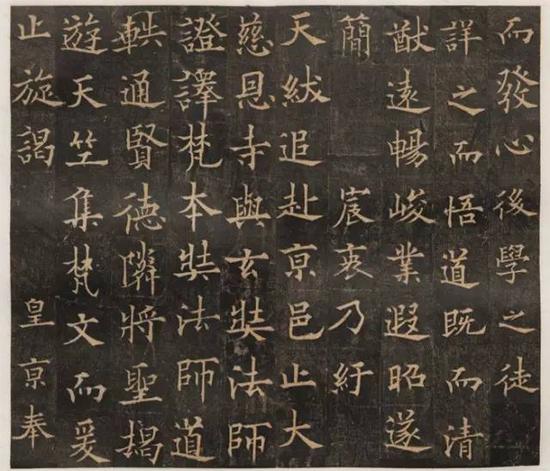 而發心後學之徒
詳之而悟道既而清
猷遠暢峻業遐昭遂
簡 宸衷乃紆
天綍追赴亰邑止大
慈恩寺與玄奘法師
證譯梵本奘法師道
軼通賢德隣將聖揭
遊天竺集梵文而爰
止旋謁 皇亰奉